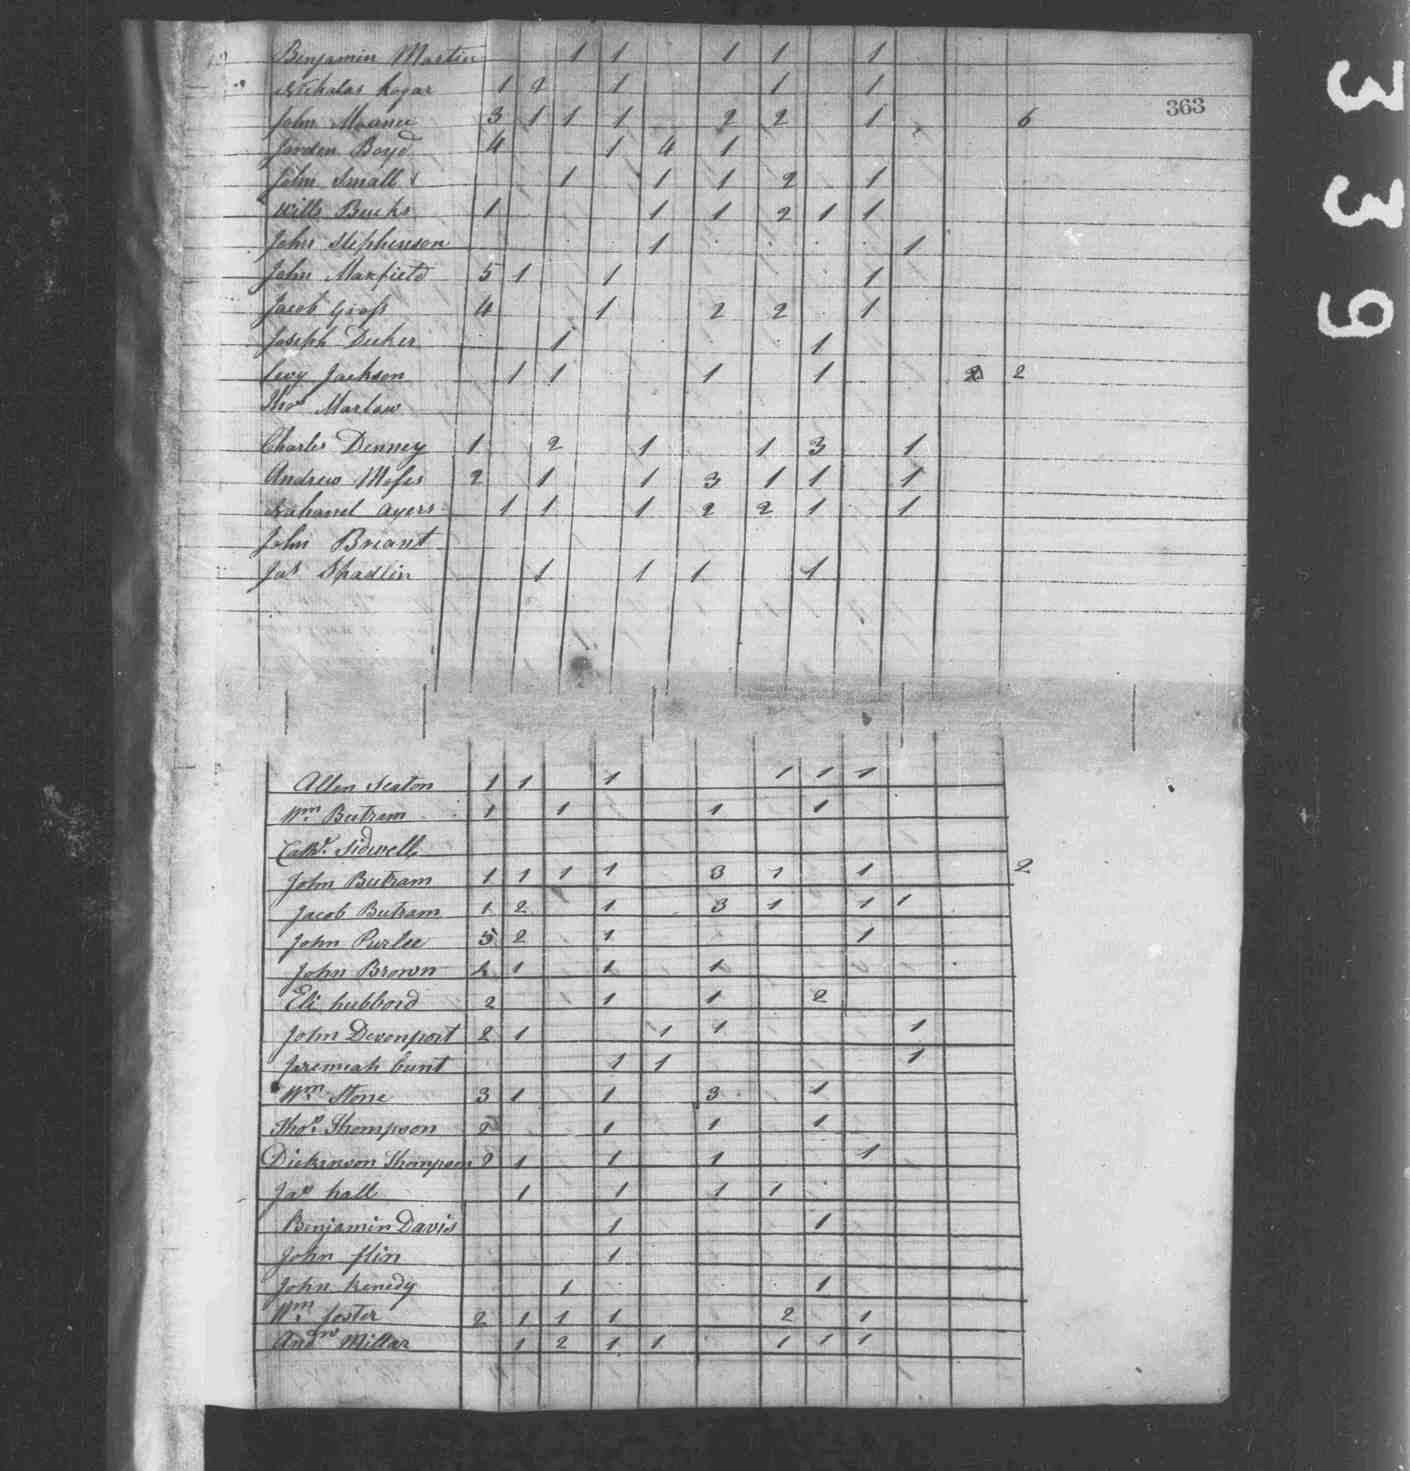 Benjamin Martin 1 1 1 1 1
Nicholas Kogar 1 2 1 1 1
363
John Mounce 3 1 1 1 2 2 1 6
Jorden Boyd 4 1 4 1
John Small 1 1 1 2 1
Wills Bucks 1 1 1 2 1 1
John Stephenson 1 1
John Maxfield 5 1 1 1
Jacob Gross 4 1 2 2 1
Joseph Decker 1 1
Levy Jackson 1 1 1 1 2
Thos Marlow
Charles Denney 1 2 1 1 3 1
Andrew Moses 2 1 1 3 1 1 1
Nathaniel Ayers 1 1 1 2 2 1 1
John Briant
Jas Shadlin 1 1 1 1
Allen Seaton 1 1 1 1 1 1
Wm. Butram 1 1 1 1
Sidwell
John Butram 1 1 1 1 3 1 1 2
Jacob Butram 1 2 1 3 1 1 1
John Purlee 5 2 1 1
John Brown 1 1 1
Eli hubbord 2 1 1 2
John Devenport 2 1 1 1 1
Jeremiah Cunt 1 1 1
Wm. Stone 3 1 1 3 1
Thos. Thompson 2 1 1 1
Dickinson Thompson 2 1 1 1 1
Jas hall 1 1 1 1
Benjamin Davis 1 1
John flin 1
John Kenedy 1 1
Wm. foster 2 1 1 1 2 1
Andrw Millar 1 2 1 1 1 1 1
3339